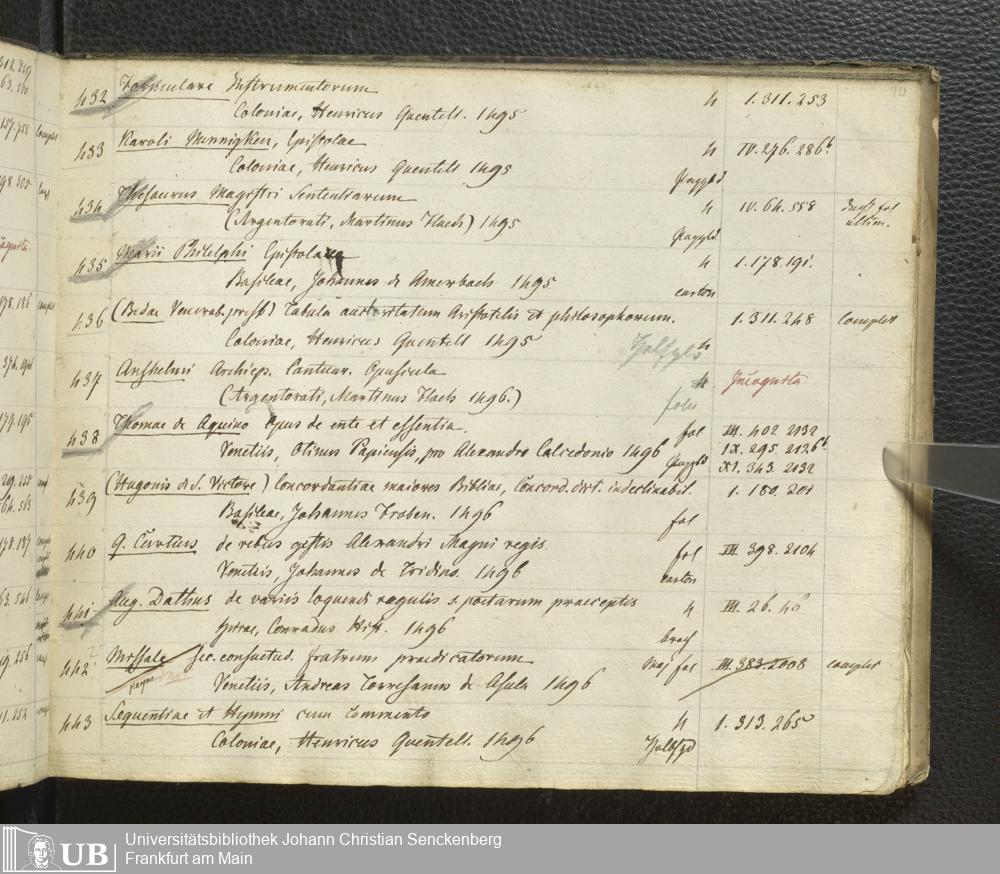 432 Vocabulare Instrumentorum 4 I. 311. 253
Coloniae, Henricus Quentell. 1495
433 Karoli Mennigken, Epistolae 4 IV. 276. 286b
Coloniae, Henricus Quentell 1495 Pappbd
434 Thesaurus Magistri Sententiarum 4 IV. 64. 558 fol
(Argentorati, Martinus Flach) 1495 Pappbd. ultim.
435 Marii Philelphi Epistolae 4 I. 178. 191.
Basileae, Johannes de Amerbach 1495 carton
436 (Bedae Venerab. presb) Tabula auctoritatum Aristotelis et philosophorum. I. 311. 248 complet
Coloniae, Henricus Quentell 1495 4
437 Anshelmi Archiep. Cantuar. Opuscula 4 Incognita
(Argentorati, Martinus Flach 1496.)
438 Thomae de Aquino Opus de ente et essentia. fol III. 402. 2132
Venetiis, Otinus Papiensis, pro Alexandro Calcedonio 1496 Pappbd IX. 295. 2126b
XI. 343. 2132
439 (Hugonis de S. Victore) Concordantiae maiores Bibliae, Concord. dict. indeclinabil. I. 180. 201
Basileae, Johannes Froben. 1496 fol
440 Q. Curtius de rebus gestis Alexandri Magni regis fol III. 398. 2104
Venetiis, Johannes de Tridino. 1496 carton
441 Aug. Dathus de variis loquendi regulis s. poetarum praeceptis 4 III. 26. 46
Spirae, Conradus Hist. 1496 broch
442 Missale sec. consuetud. fratrum praedicatorum maj fol III. 383. 2008 complet
Venetiis, Andreas Torresanus de Asula 1496
443 Sequentiae et Hymni cum commento 4 I. 313. 265
Coloniae, Henricus Quentell. 1496
UB
Universitätsbibliothek Johann Christian Senckenberg
Frankfurt am Main